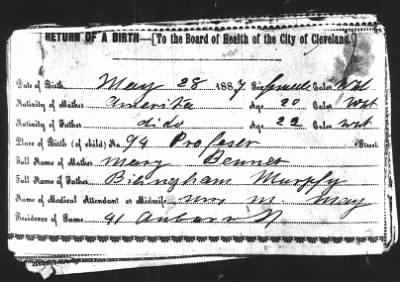 RETURN OF A BIRTH—[To the Board of Health of the City of Cleveland.]
Date of Birth May 28 1887 Sex female Color Wht
Nativity of Mother America Age 20 Color Wht
Nativity of Father dido Age 22 Color Wht
Place of Birth (of child) No. 94 Profeser Street
Full Name of Mother Mary Bennes
Full Name of Father Bibingham Murphy
Name of Medical Attendant or Midwife Mrs M. May
Residence of Same 41 Auburn